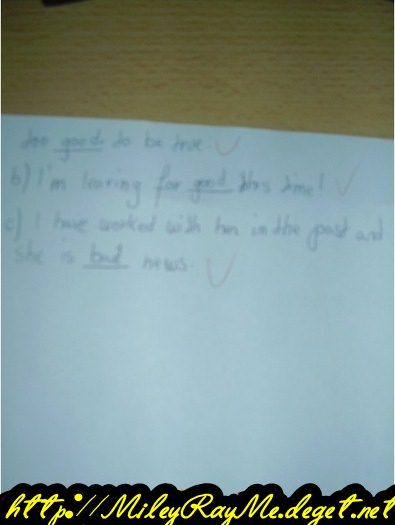 too good to be true.
b) I'm leaving for good this time!
c) I have worked with her in the past and
she is bad news.
http://MileyRayMe.deget.net